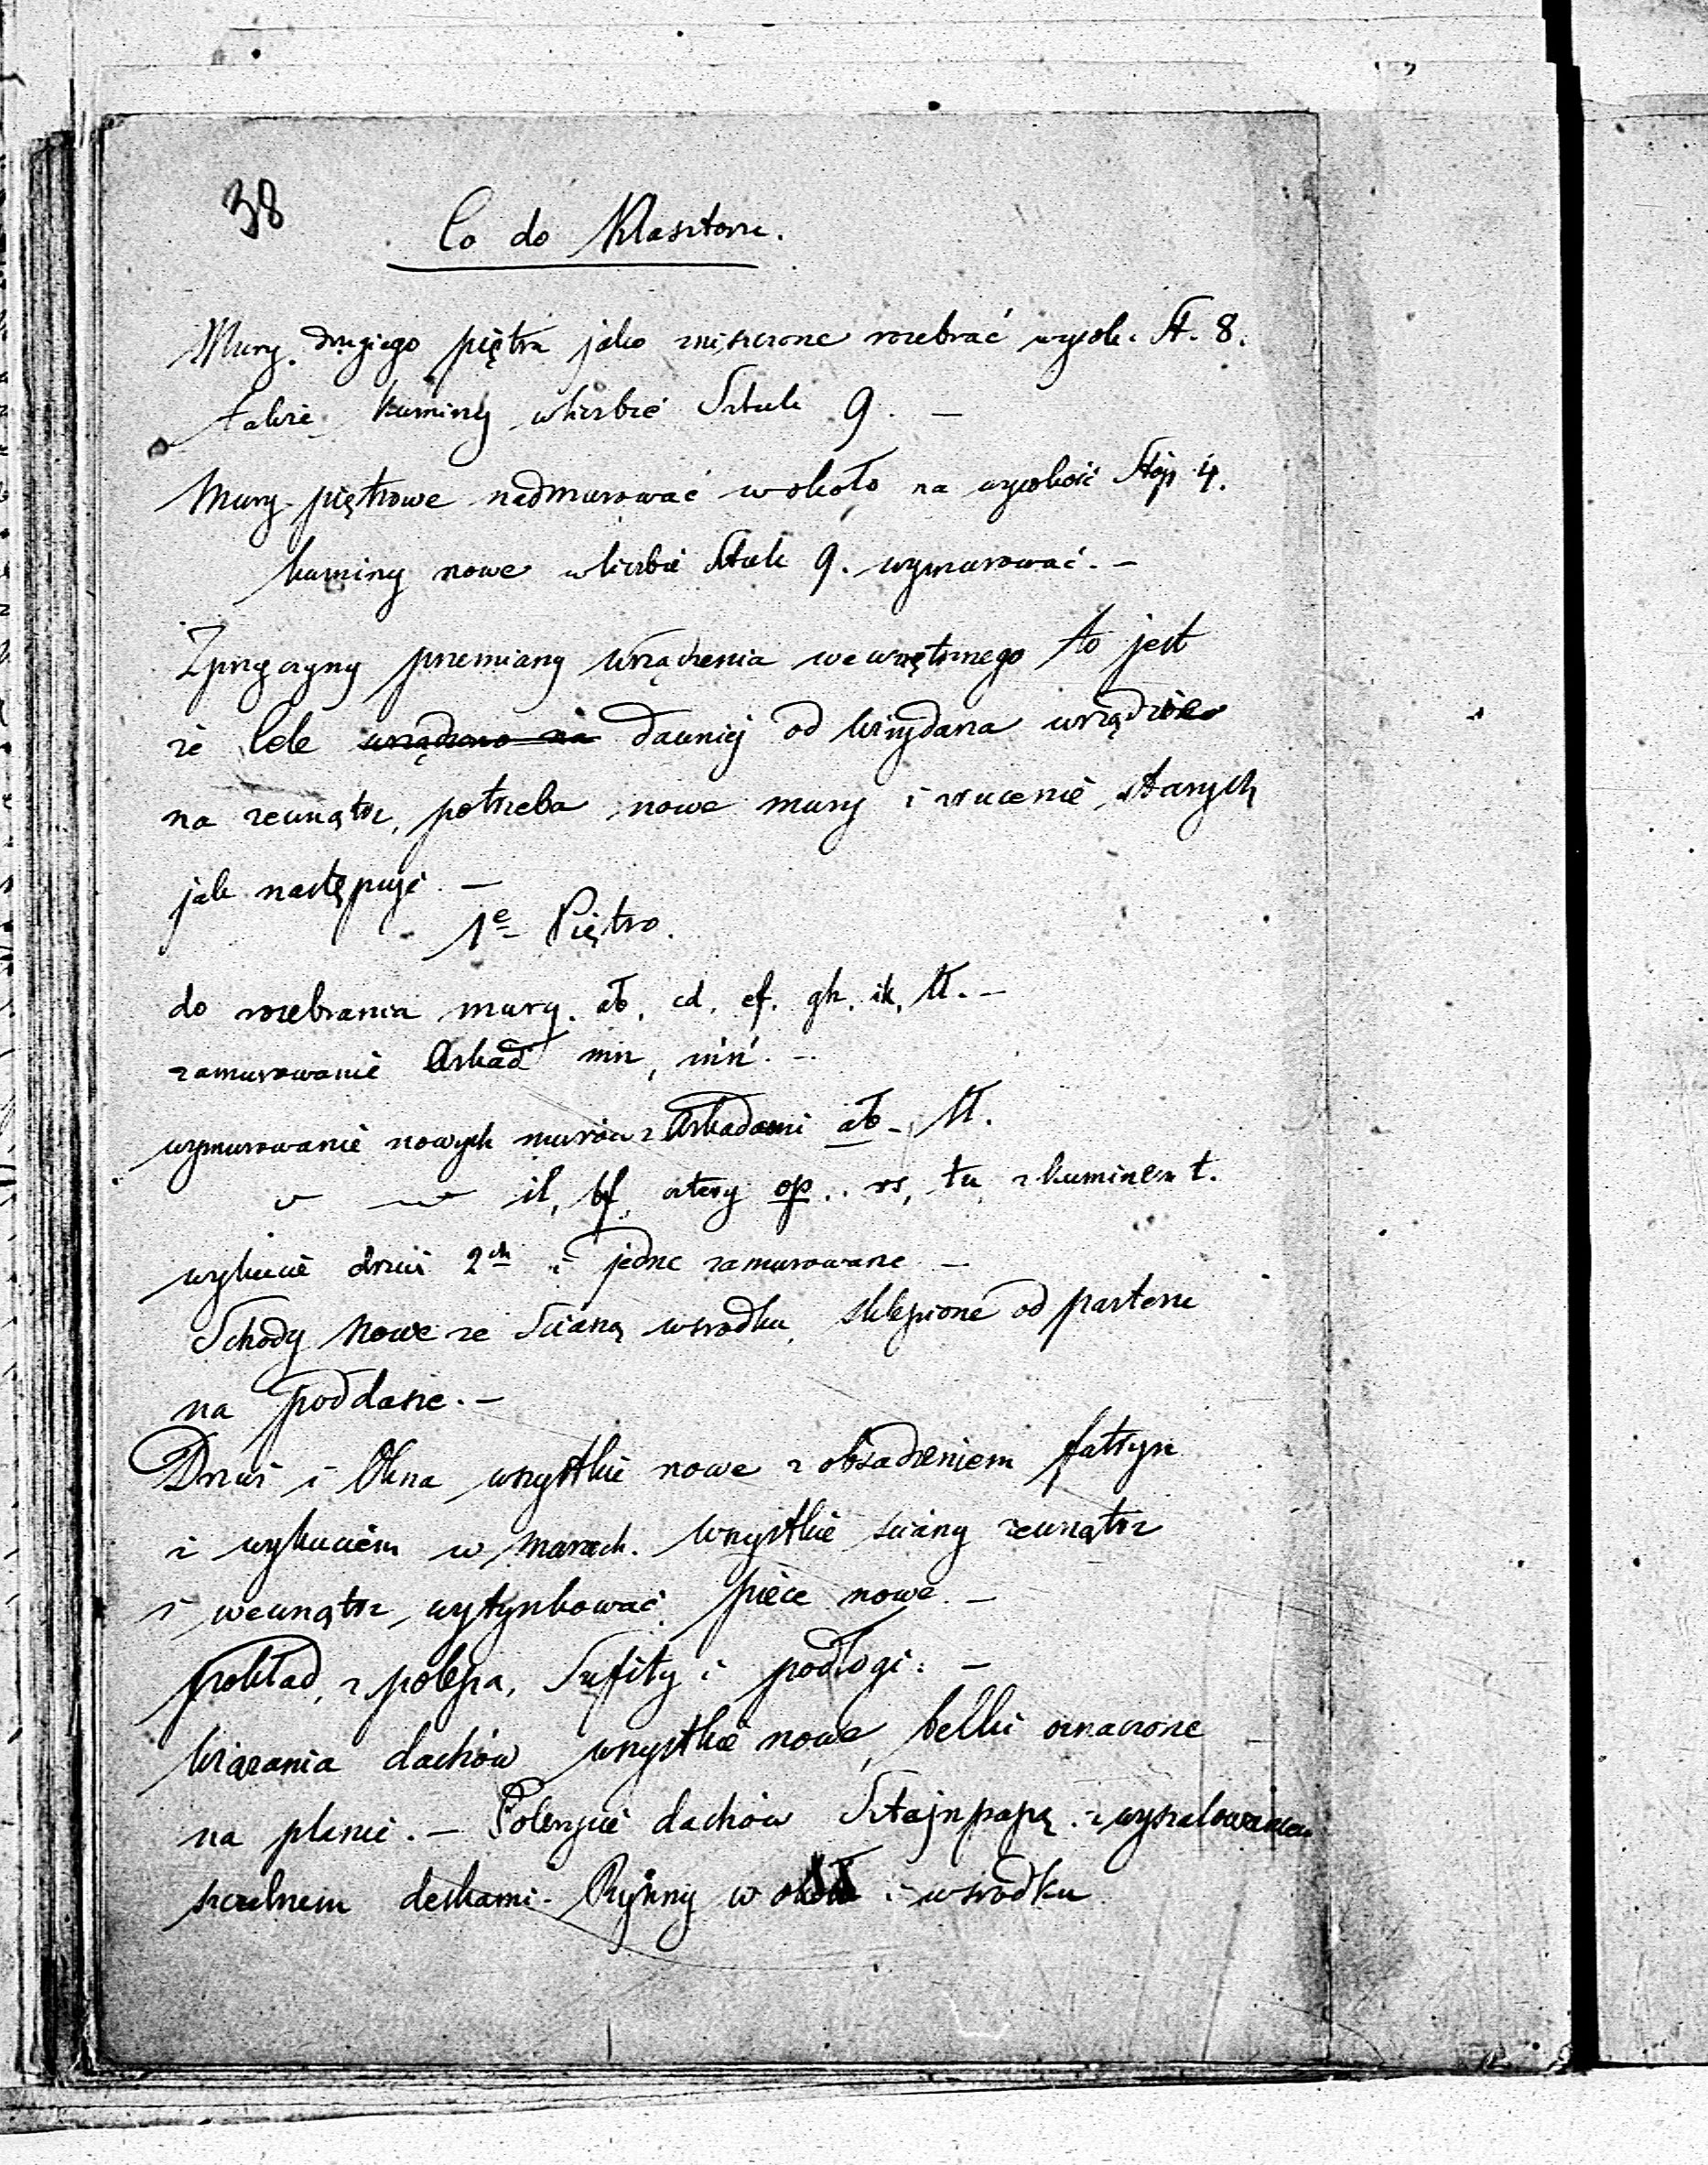 38
Co do Klasztoru.
Mury drugiego piętra jako zniszczone rozebrać wysok. St. 8.
także kominy wliczbie Sztuk 9. —
Mury piętrowe nadmurować wokoło na wysokość Stóp 4.
kominy nowe wliczbie Sztuk 9. wymurować. —
Zprzyczyny przemiany Urządzenia wewnętrznego to jest
że Cele urządzono na dawniej od Wirydarza urządzićo
na zewnątrz, potrzeba nowe mury i rzucenie starych
jak następuje. —
1e Piętro.
do rozebrania mury. ab, cd, ef. gh, ik, lł. —
zamurowanie Arkad mn, m'n'. —
wymurowanie nowych murów z Arkadami ab - lł.
il, bf, cztery op.. rs, tu z kominem t.
wykucie drzwi 2ch i jedne zamurowane —
Schody Nowe ze Scianą wsrodku, sklepione od parteru
na poddasze. —
Drzwi i Okna wszystkie nowe z obsadzeniem futryn
i wykuciem w murach. Wszystkie sciany zewnątrz
i wewnątrz wytynkować piece nowe. —
Pokład, z polepa, Sufity i podłogi: —
Wiązania dachów wszystkie nowe, belki oznaczone
na planie. — Pokrycie dachów Sztajnpapą. z wyszalowaniem
szczelnem deskami - Rynny w około i wsrodku